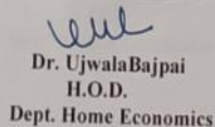 Dr. UjwalaBajpai
H.O.D.
Dept. Home Economics